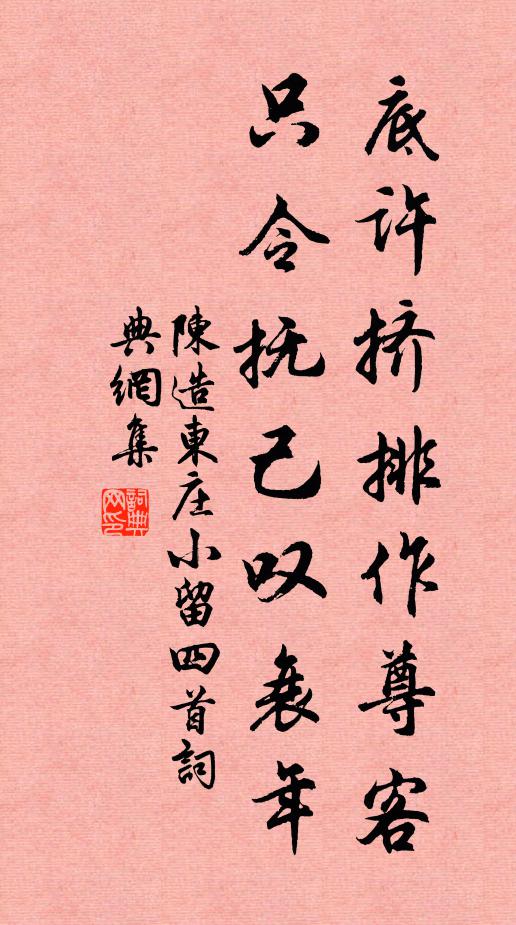 底许挤排作尊客
只令抚己叹衰年
陳造東庄小留四首詞
典網集
詞典网印